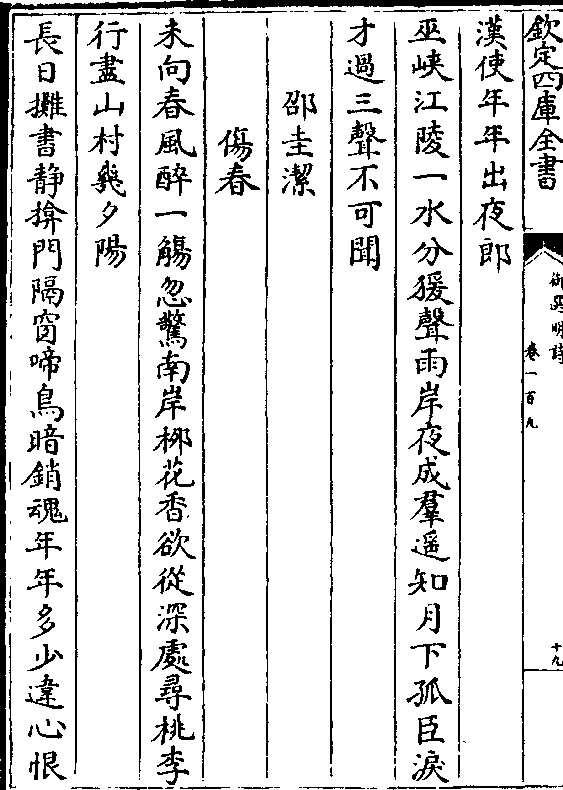 欽定四庫全書
御選明詩
卷一百九
十九
漢使年年出夜郎
巫峽江陵一水分猨聲兩岸夜成羣遥知月下孤臣淚
才過三聲不可聞
邵圭潔
傷春
未向春風醉一觴忽驚南岸栁花香欲從深處尋桃李
行盡山村幾夕陽
長日攤書静揜門隔窗啼鳥暗銷魂年年多少違心恨